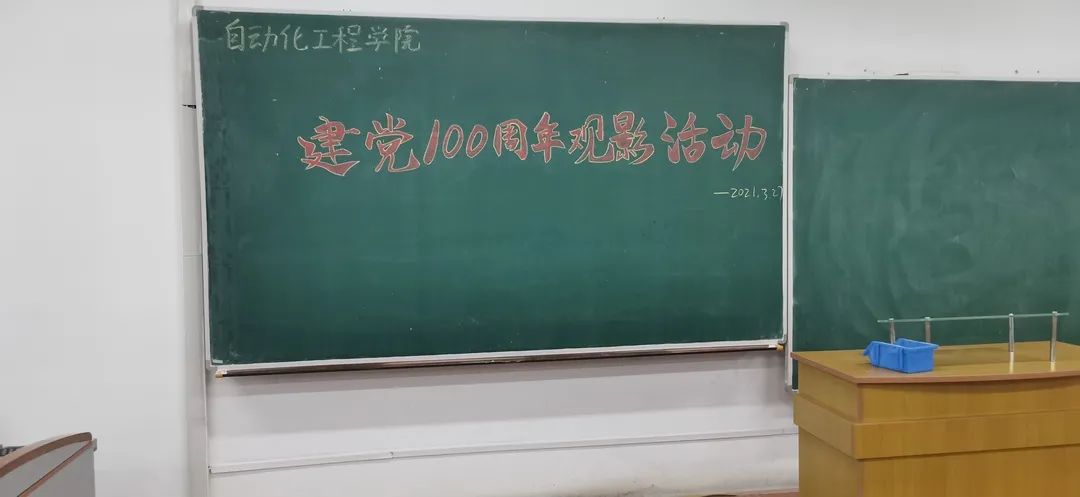 自动化工程学院
建党100周年观影活动
—2021.3.27